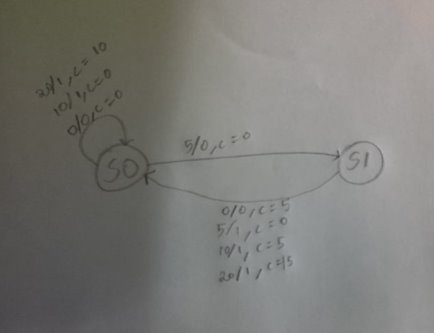 20/1, c = 10
10/1, c = 0
0/0, c = 0
5/0, c = 0
S0
S1
0/0, c = 5
5/1, c = 0
10/1, c = 5
20/1, c = 15